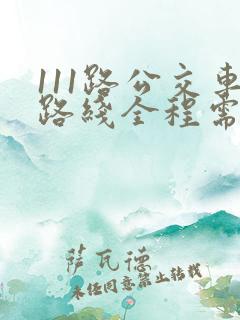 111路公交车
路线全程需
萨瓦德
未经同意禁止转载